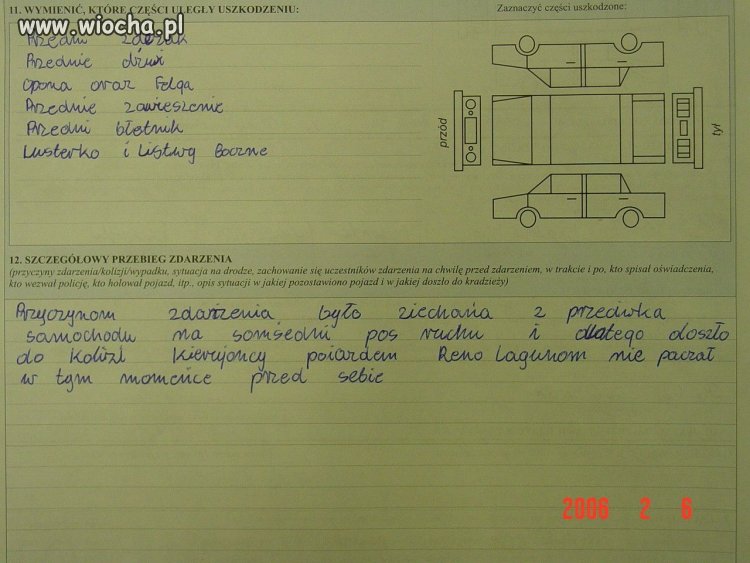 www.wiocha.pl
11. WYMIENIĆ, KTÓRE CZĘŚCI ULEGŁY USZKODZENIU:
Zaznaczyć części uszkodzone:
Przedni zderzak
Przednie dżwi
opona oraz Felga
Przednie zawieszenie
Przedni błotnik
Lusterko i Listwy Boczne
przód
tył
12. SZCZEGÓŁOWY PRZEBIEG ZDARZENIA
(przyczyny zdarzenia/kolizji/wypadku, sytuacja na drodze, zachowanie się uczestników zdarzenia na chwilę przed zdarzeniem, w trakcie i po, kto spisał oświadczenia,
kto wezwał policję, kto holował pojazd, itp., opis sytuacji w jakiej pozostowiono pojazd i w jakiej doszło do kradzieży)
Przyczynom zdarzenia było ziechania z przeciwka
samochodu na somśedni pos ruchu i dlatego doszło
do Kolizi Kierujoncy poiazdem Reno Lagunom nie paczał
w tym momeńce przed sebie
2006 2 6